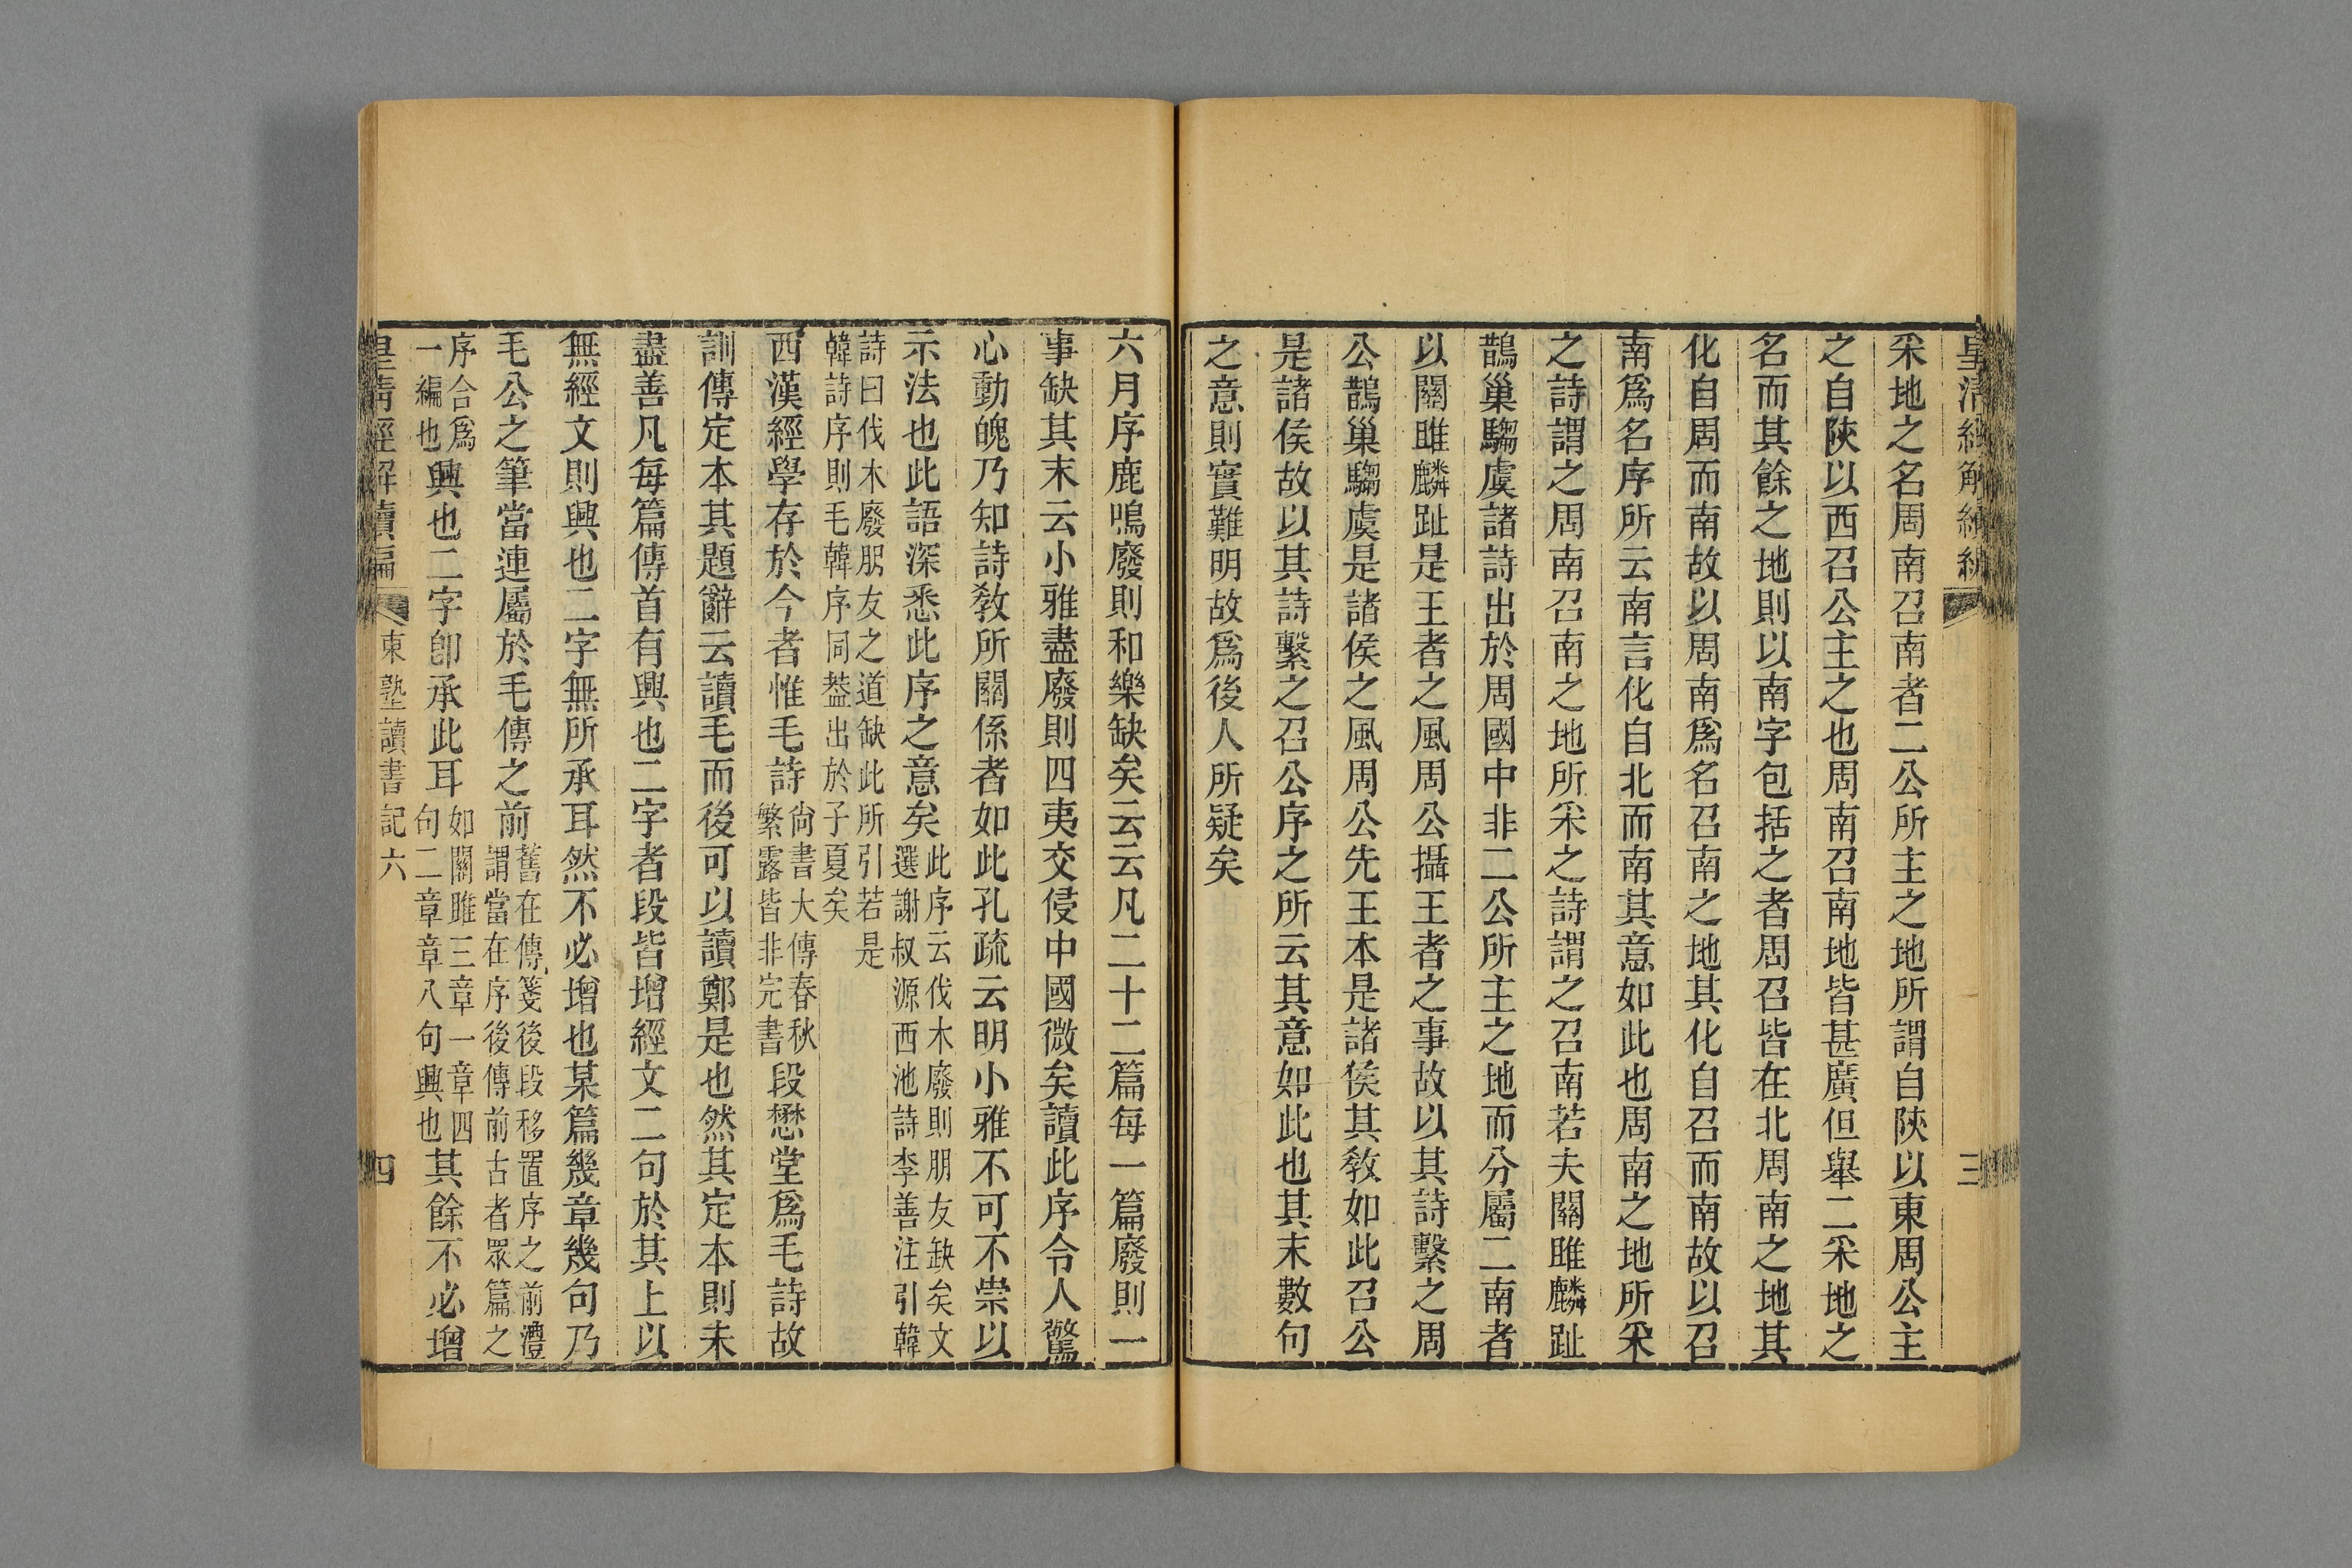 皇清經解續編
三
采地之名周南召南者二公所主之地所謂自陝以東周公主
之自陝以西召公主之也周南召南地皆甚廣但舉二采地之
名而其餘之地則以南字包括之者周召皆在北周南之地其
化自周而南故以周南爲名召南之地其化自召而南故以召
南爲名序所云南言化自北而南其意如此也周南之地所采
之詩謂之周南召南之地所采之詩謂之召南若夫關雎麟趾
鵲巢騶虞諸詩出於周國中非二公所主之地而分屬二南者
以關雎麟趾是王者之風周公攝王者之事故以其詩繫之周
公鵲巢騶虞是諸侯之風周公先王本是諸侯其敎如此召公
是諸侯故以其詩繫之召公序之所云其意如此也其末數句
之意則實難明故爲後人所疑矣
六月序鹿鳴廢則和樂缺矣云云凡二十二篇每一篇廢則一
事缺其末云小雅盡廢則四夷交侵中國微矣讀此序令人驚
心動魄乃知詩敎所關係者如此孔疏云明小雅不可不崇以
示法也此語深悉此序之意矣此序云伐木廢則朋友缺矣文
選謝叔源西池詩李善注引韓
詩曰伐木廢朋友之道缺此所引若是
韓詩序則毛韓序同葢出於子夏矣
西漢經學存於今者惟毛詩尙書大傳春秋
繁露皆非完書段懋堂爲毛詩故
訓傳定本其題辭云讀毛而後可以讀鄭是也然其定本則未
盡善凡每篇傳首有興也二字者段皆增經文二句於其上以
無經文則興也二字無所承耳然不必增也某篇幾章幾句乃
毛公之筆當連屬於毛傳之前舊在傳箋後段移置序之前澧
謂當在序後傳前古者眾篇之
序合爲
一編也興也二字卽承此耳如關雎三章一章四
句二章章八句興也其餘不必增
皇清經解續編
東塾讀書記六
四